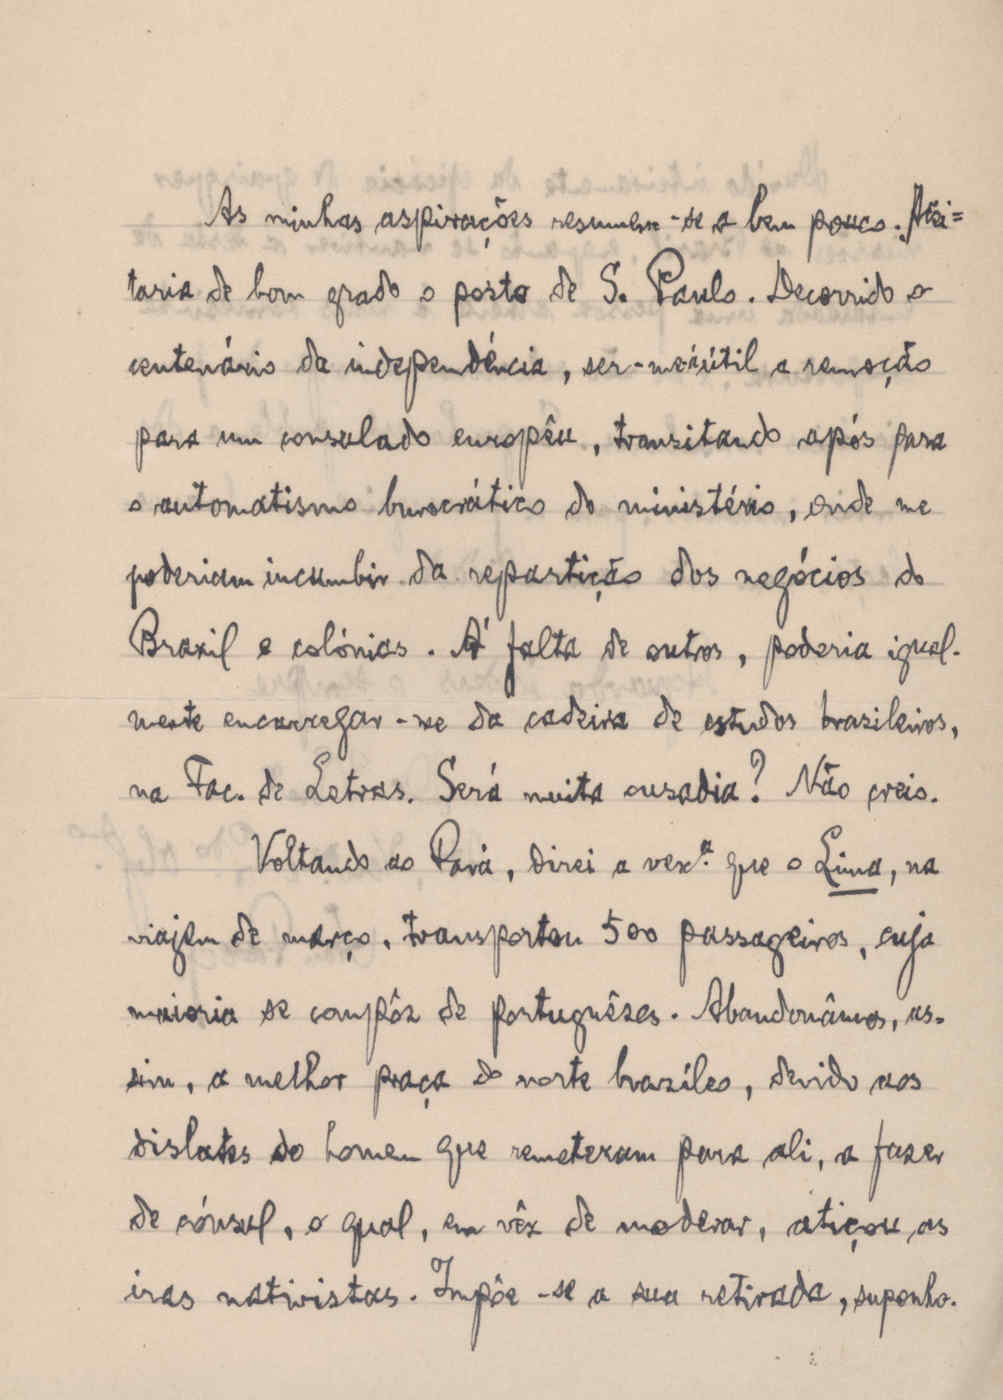 As minhas aspirações resumem-se a bem pouco. Acei=
taria de bom grado o posto de S. Paulo. Decorrido o
centenário da independência, ser-me-ia útil a remoção
para um consulado europêu, transitando após para
o automatismo burocrático do ministério, onde me
poderiam incumbir da repartição dos negócios do
Brazil e colónias. Á falta de outros, poderia igual-
mente encarregar-me da cadeira de estudos brazileiros,
na Fac. de Letras. Será muita ousadia? Não creio.
Voltando ao Pará, direi a vexª. que o Lima, na
viajem de março, transportou 500 passageiros, cuja
maioria se compôz de portuguêzes. Abandonâmos, as-
sim, a melhor praça do norte brazíleo, devido aos
dislates do homem que remeteram para ali, a fazer
de cónsul, o qual, em vêz de moderar, atiçou as
iras nativistas. Impõe-se a sua retirada, suponho.